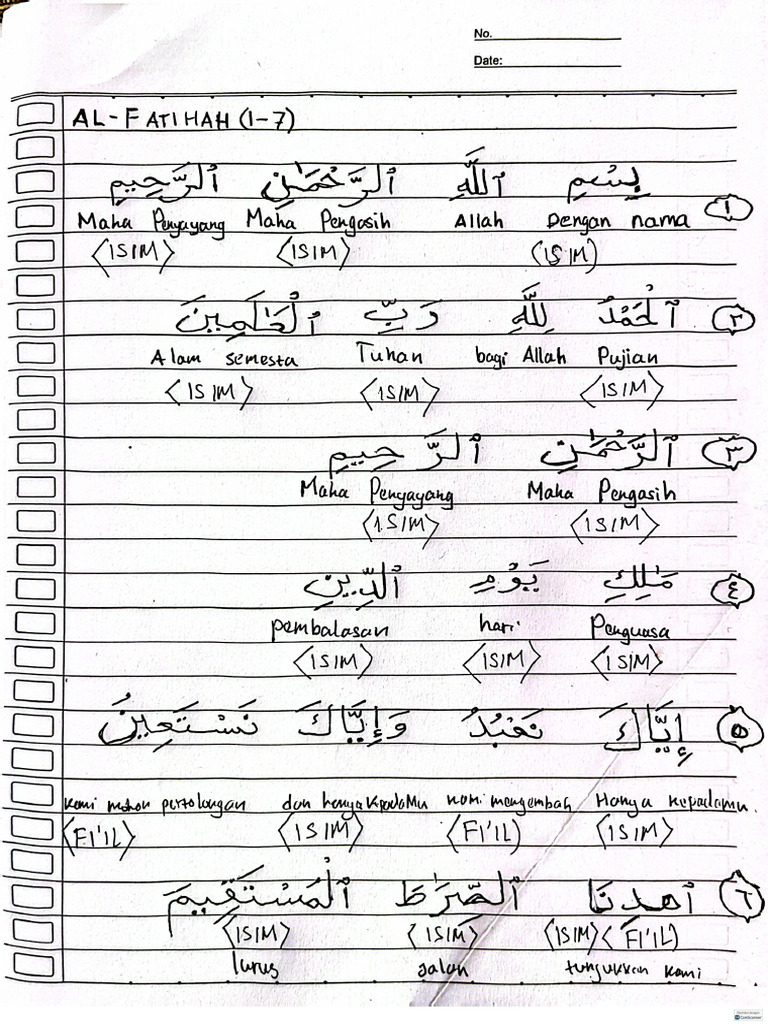 No.
Date:
AL-FATIHAH (1-7)
بِسْمِ ٱللَّهِ ٱلرَّحْمَٰنِ ٱلرَّحِيمِ ١
Dengan nama Allah Maha Pengasih Maha Penyayang
(ISIM) <ISIM> <ISIM>
ٱلْحَمْدُ لِلَّهِ رَبِّ ٱلْعَٰلَمِينَ ٢
Pujian bagi Allah Tuhan Alam semesta
<ISIM> <ISIM> <ISIM>
ٱلرَّحْمَٰنِ ٱلرَّحِيمِ ٣
Maha Pengasih Maha Penyayang
<ISIM> <ISIM>
مَٰلِكِ يَوْمِ ٱلدِّينِ ٤
Penguasa hari pembalasan
<ISIM> <ISIM> <ISIM>
إِيَّاكَ نَعْبُدُ وَإِيَّاكَ نَسْتَعِينُ ٥
Hanya kepadamu kami mengembah dan hanya kpadaMu kami mohon pertolongan
<ISIM> <FI'IL) <ISIM> <FI'IL>
ٱهدنَا ٱلصِّرَٰطَ ٱلْمُسْتَقِيمَ ٦
<FI'IL) <ISIM> <ISIM> <ISIM>
tunjukkan kami jalan lurus
CamScanner